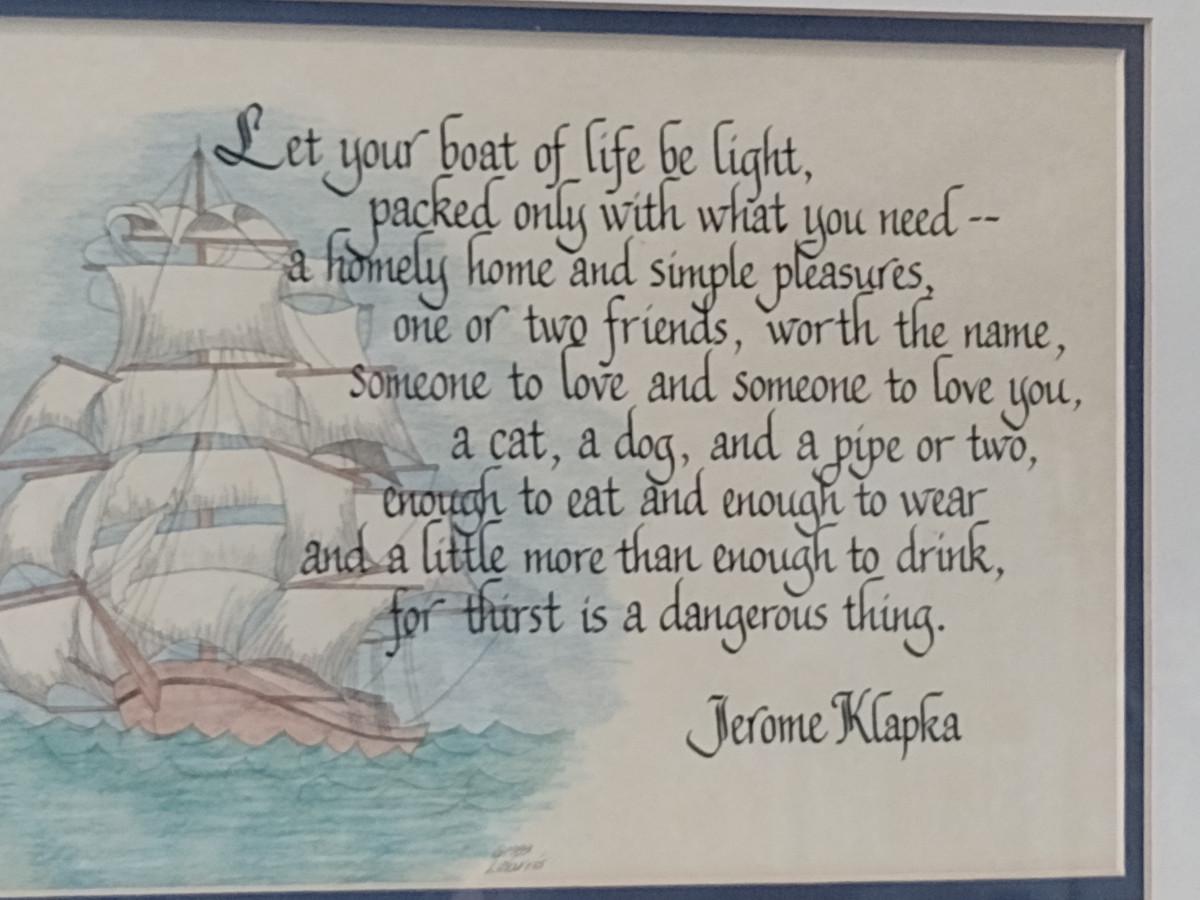 Let your boat of life be light,
packed only with what you need --
a homely home and simple pleasures,
one or two friends, worth the name,
someone to love and someone to love you,
a cat, a dog, and a pipe or two,
enough to eat and enough to wear
and a little more than enough to drink,
for thirst is a dangerous thing.
Jerome Klapka